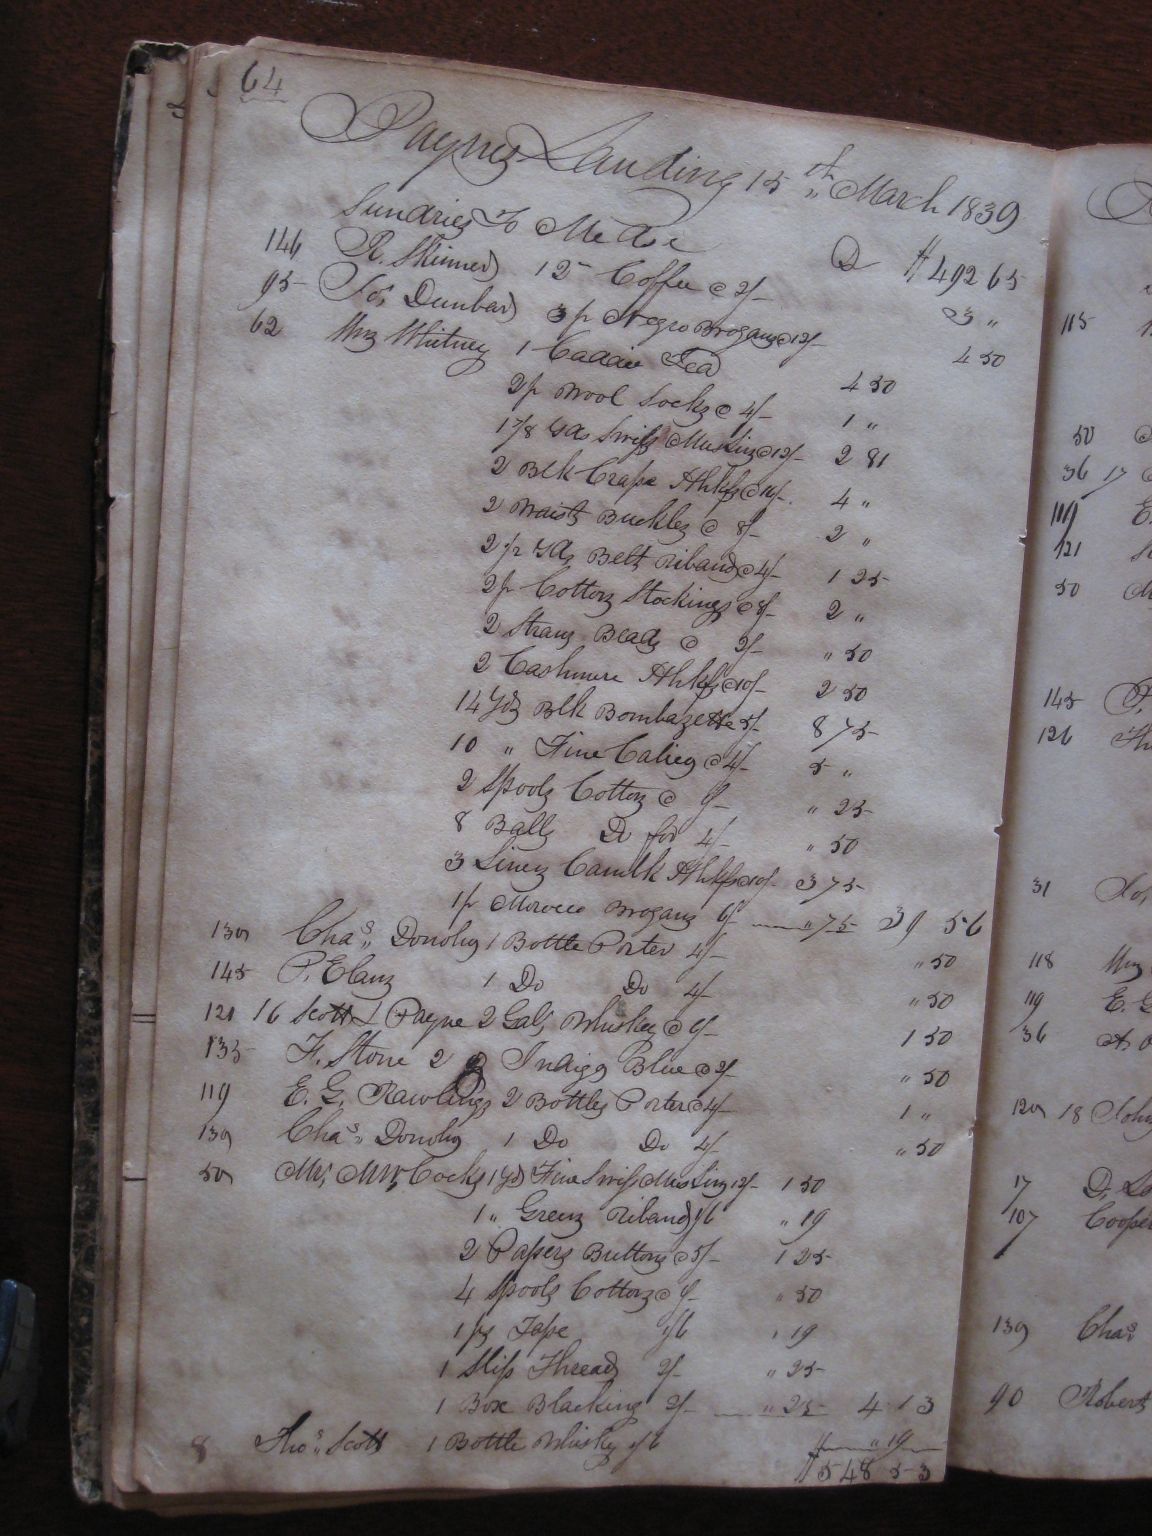 64
Paynes Landing 15th March 1839
Sundries To Mdse D $492 65
146 R. Skinner 12 Coffee @ 2/- 3 "
95 Jos, Dunbar 3 pr Negro Brogans @ 12/- 4 50
62 Mrs Whitney 1 Caddie Tea 4 50
2 pr Wool Socks @ 4/- 1 "
1 7/8 Yds Swiss Muslin @ 12/- 2 81
2 Blk Crape Hhkfs @ 16/- 4 "
2 Waist Buckles @ 8/- 2 "
2 1/2 Yds Belt Riband @ 4/- 1 25
2 pr Cotton Stockings @ 8/- 2 "
2 Strans Beads @ 2/- " 50
2 Cashmere Hhkfs @ 10/- 2 50
14 Yds Blk Bombazette 5/- 8 75
10 " Fine Calico @ 4/- 5 "
2 Spools Cotton @ 1/- " 25
8 Balls Do for 4/- " 50
3 Linen Camlk Hhkfs @ 10/- 3 75
1 pr Morocco Brogans 6/- " 75 39 56
139 Chas, Donohy 1 Bottle Porter 4/- " 50
145 P. Elanz 1 Do Do 4/- " 50
121 16 Scott & Payne 2 Gals, Whiskey @ 6/- 1 50
135 F. Stone 2 Indigo Blue @ 2/- " 50
119 E. G. Rawlings 2 Bottles Porter @ 4/- 1 "
139 Chas, Donohy 1 Do Do 4/- " 50
50 Mr, Mw, Cocks 1 Yd Fine Swiss Muslin 12/- 1 50
1 " Green Riband 1/6 " 19
2 Papers Buttons @ 5/- 1 25
4 Spools Cotton @ 1/- " 50
1 ps Tape 1/6 " 19
1 Slip Thread 2/- " 25
1 Box Blacking 2/- " 25 4 13
8 Thos, Scott 1 Bottle Whisky 1/6 " 19
$548 53
115
50
36 17
119 E.
121
50
145 P.
126
31 Jos,
118 Mrs
119 E. G
36
120 18 John
17 D,
107 Cooper
139 Chas
90 Robert